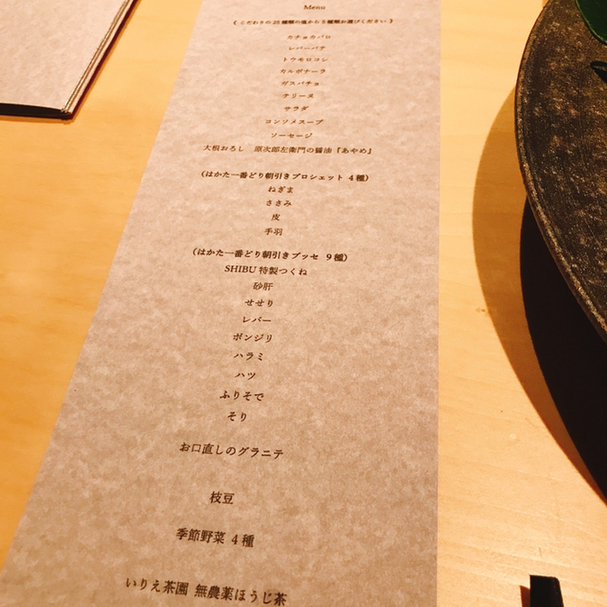 Menu
《 こだわりの 25 種類の塩から 3 種類お選びください 》
カチョカバロ
レバーパテ
トウモロコシ
カルボナーラ
ガスパチョ
テリーヌ
サラダ
コンソメスープ
ソーセージ
大根おろし 源次郎左衛門の醤油『あやめ』
(はかた一番どり朝引きブロシェット 4種)
ねぎま
ささみ
皮
手羽
(はかた一番どり朝引きブッセ 9種)
SHIBU 特製つくね
砂肝
せせり
レバー
ボンジリ
ハラミ
ハツ
ふりそで
そり
お口直しのグラニテ
枝豆
季節野菜 4種
いりえ茶園 無農薬ほうじ茶